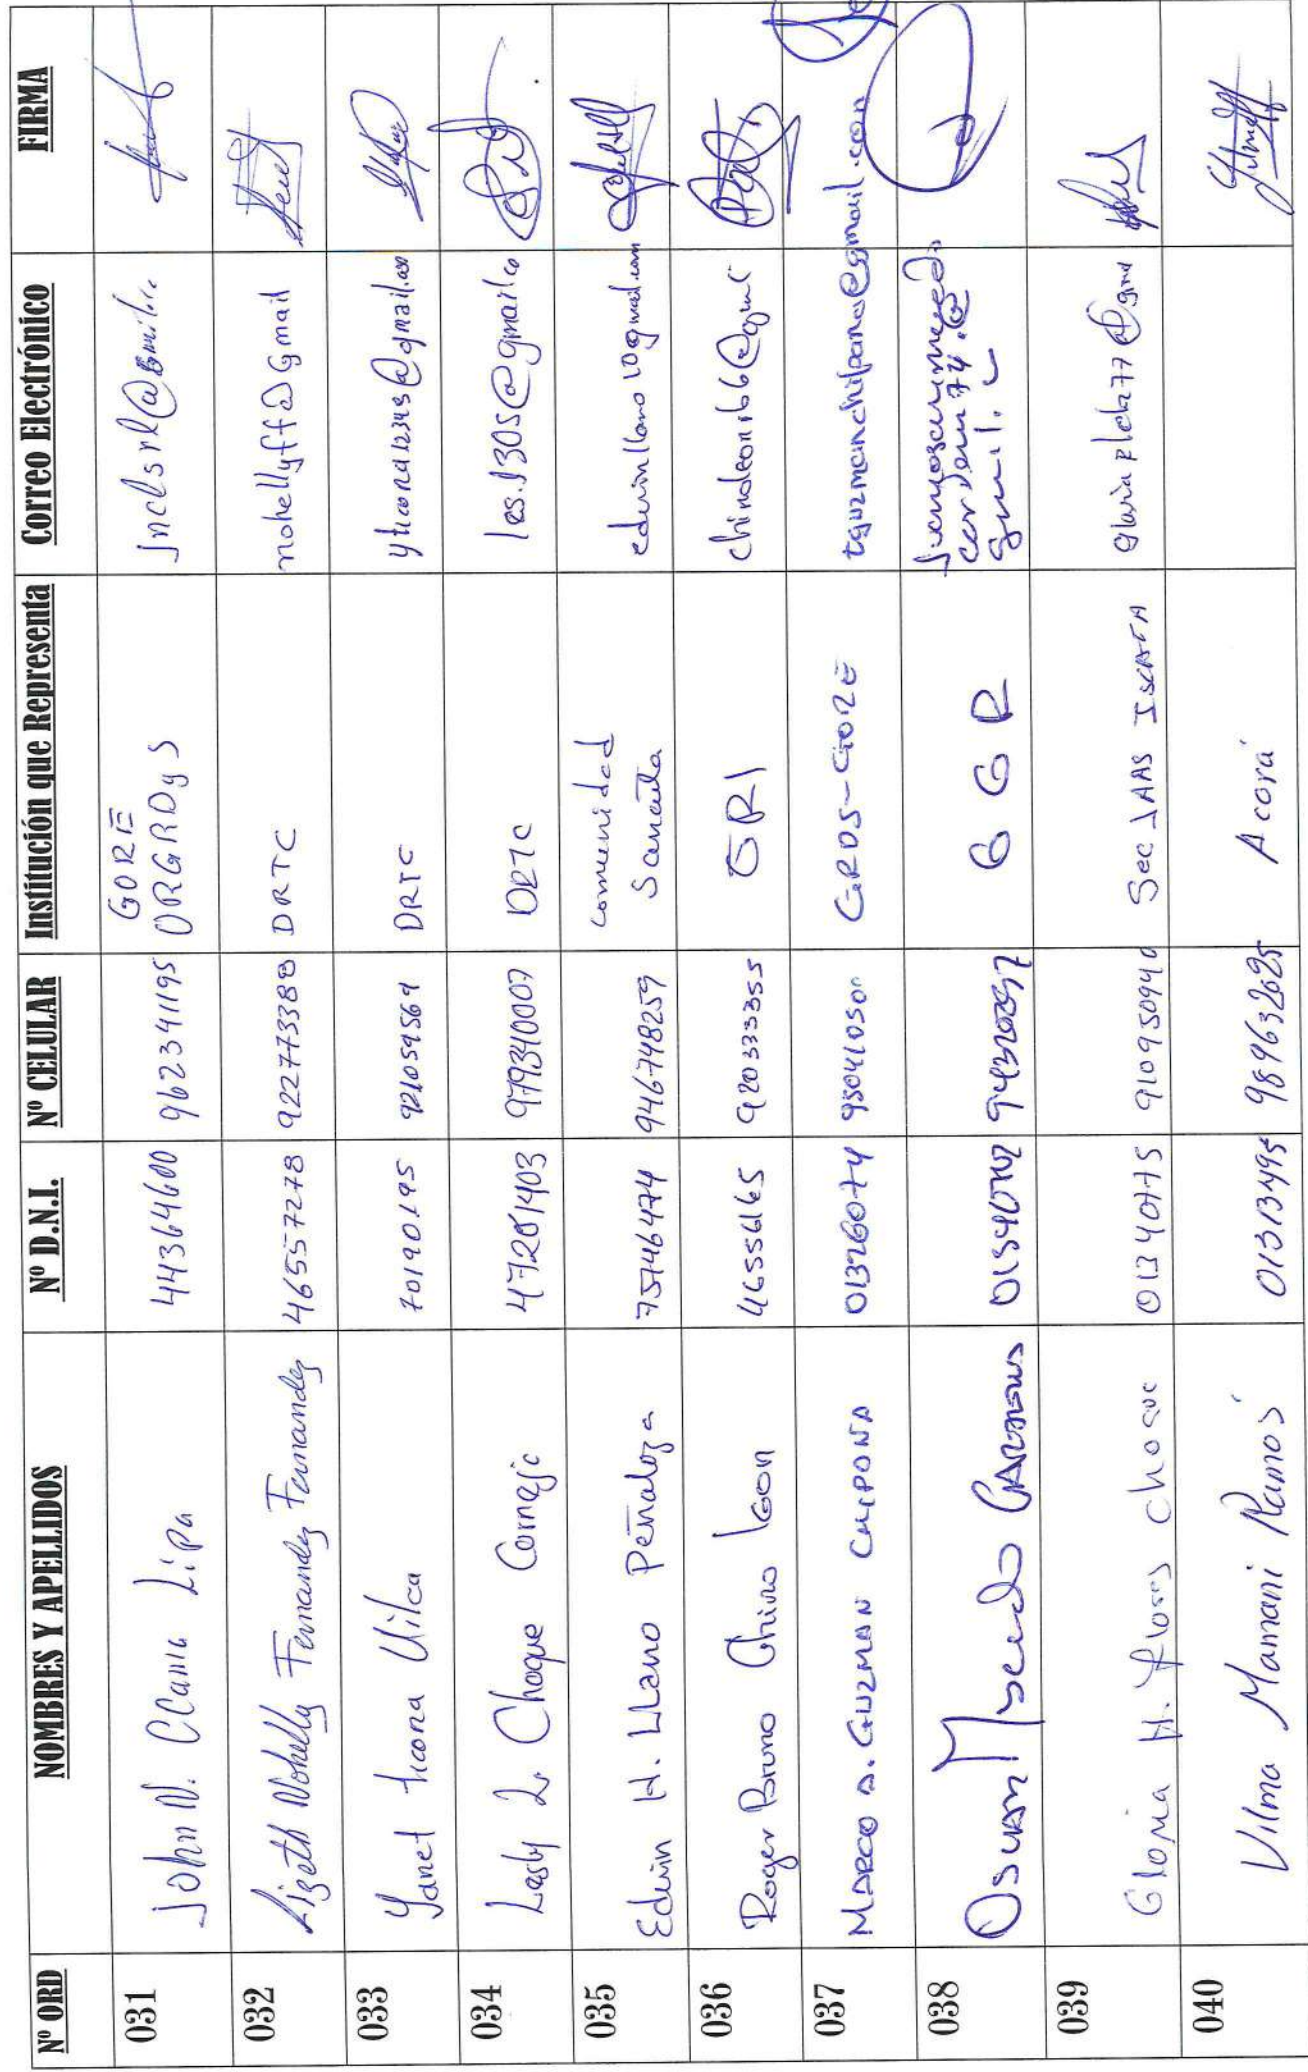 Nº ORD NOMBRES Y APELLIDOS Nº D.N.I. Nº CELULAR Institución que Representa Correo Electrónico FIRMA
031 John N. Ccama Lipa 44364600 962341195 GORE ORGRDyS
032 Lizeth Nohelly Fernandez Fernandez 46557278 922773388 DRTC nohellyff@gmail
033 Yanet ticona Vilca 70190195 921059564 DRTC yticona12345@gmail.com
034 Lesly L. Choque Cornejo 47201403 979340007 DRTC les.1305@gmail.co
035 Edwin H. Llano Peñaloza 75746474 946748259 comunidad edwinllano10gmail.com
036 Roger Bruno Chino leon 46556165 920333355 GRI chinoleon166@gmai
037 MARCO A. GUZMAN CHIPONA 01326074 GRDS-GORE tguzmanchipana@gmail.com
038 GGR
039 Gloria H. flores choque 01340775 910950940 Sec JAAS
040 Vilma Mamani Ramos 01313495 989632625 Acora